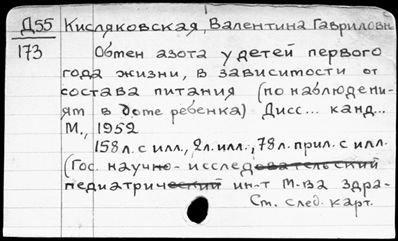 Д55 Кисляковская, Валентина Гавриловн
173 Обмен азота у детей первого
года жизни, в зависимости от
состава питания (по наблюдени-
ям в доме ребенка) Дисс... канд...
М., 1952
158 л. с илл., 2 л. илл., 78 л. прил. с илл.
(Гос. научно-исследовательский
педиатрический ин-т М-ва здра-
См. след. карт.